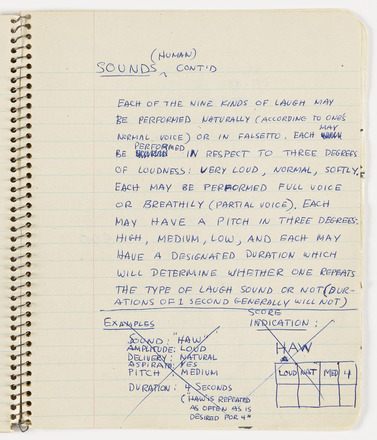 (HUMAN)
SOUNDS CONT'D
EACH OF THE NINE KINDS OF LAUGH MAY
BE PERFORMED NATURALLY (ACCORDING TO ONE'S
NORMAL VOICE) OR IN FALSETTO. EACH MAY
BE PERFORMED IN RESPECT TO THREE DEGREES
OF LOUDNESS: VERY LOUD, NORMAL, SOFTLY.
EACH MAY BE PERFORMED FULL VOICE
OR BREATHILY (PARTIAL VOICE). EACH
MAY HAVE A PITCH IN THREE DEGREES:
HIGH, MEDIUM, LOW, AND EACH MAY
HAVE A DESIGNATED DURATION WHICH
WILL DETERMINE WHETHER ONE REPEATS
THE TYPE OF LAUGH SOUND OR NOT (DUR-
ATIONS OF 1 SECOND GENERALLY WILL NOT)
EXAMPLES
SOUND: "HAW"
AMPLITUDE: LOUD
DELIVERY: NATURAL
ASPIRATE: YES
PITCH: MEDIUM
DURATION: 4 SECONDS
(HAW IS REPEATED
AS OFTEN AS IS
DESIRED FOR 4"
SCORE
INDICATION:
HAW
A
LOUD NAT MED 4